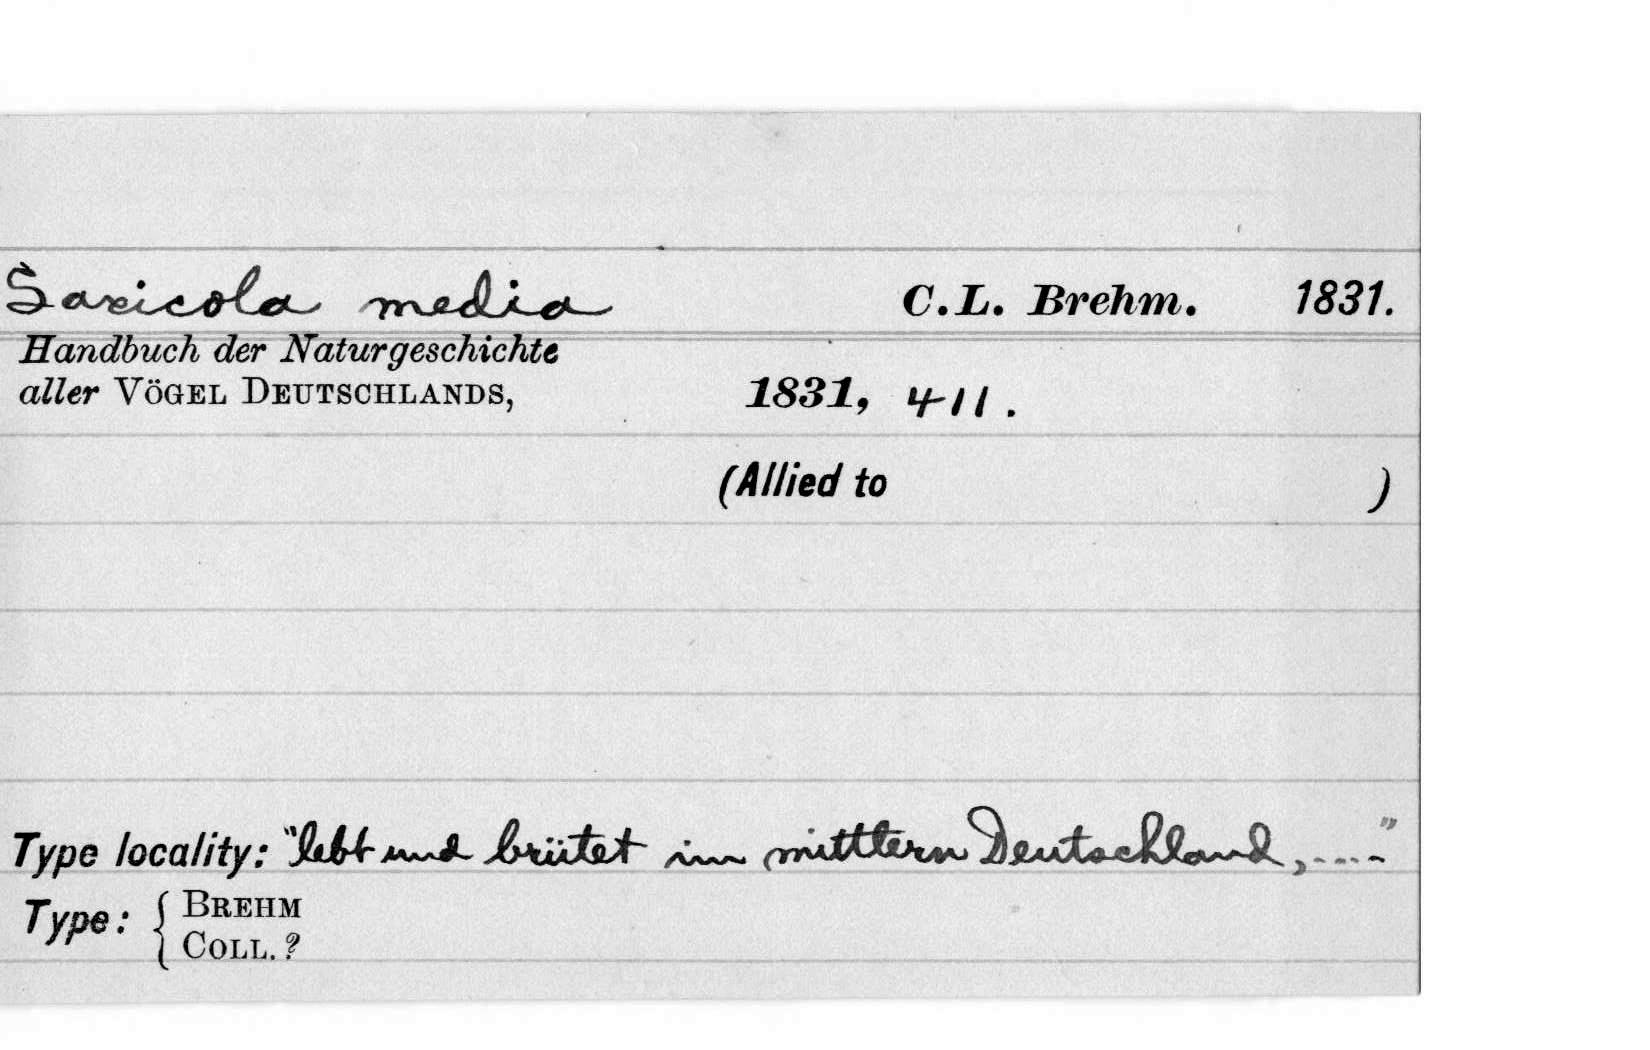 Saxicola media C.L. Brehm. 1831.
Handbuch der Naturgeschichte
aller VÖGEL DEUTSCHLANDS, 1831, 411.
(Allied to )
Type locality: "lebt und brütet im mittlern Deutschland, ....."
Type: { BREHM
COLL. ?